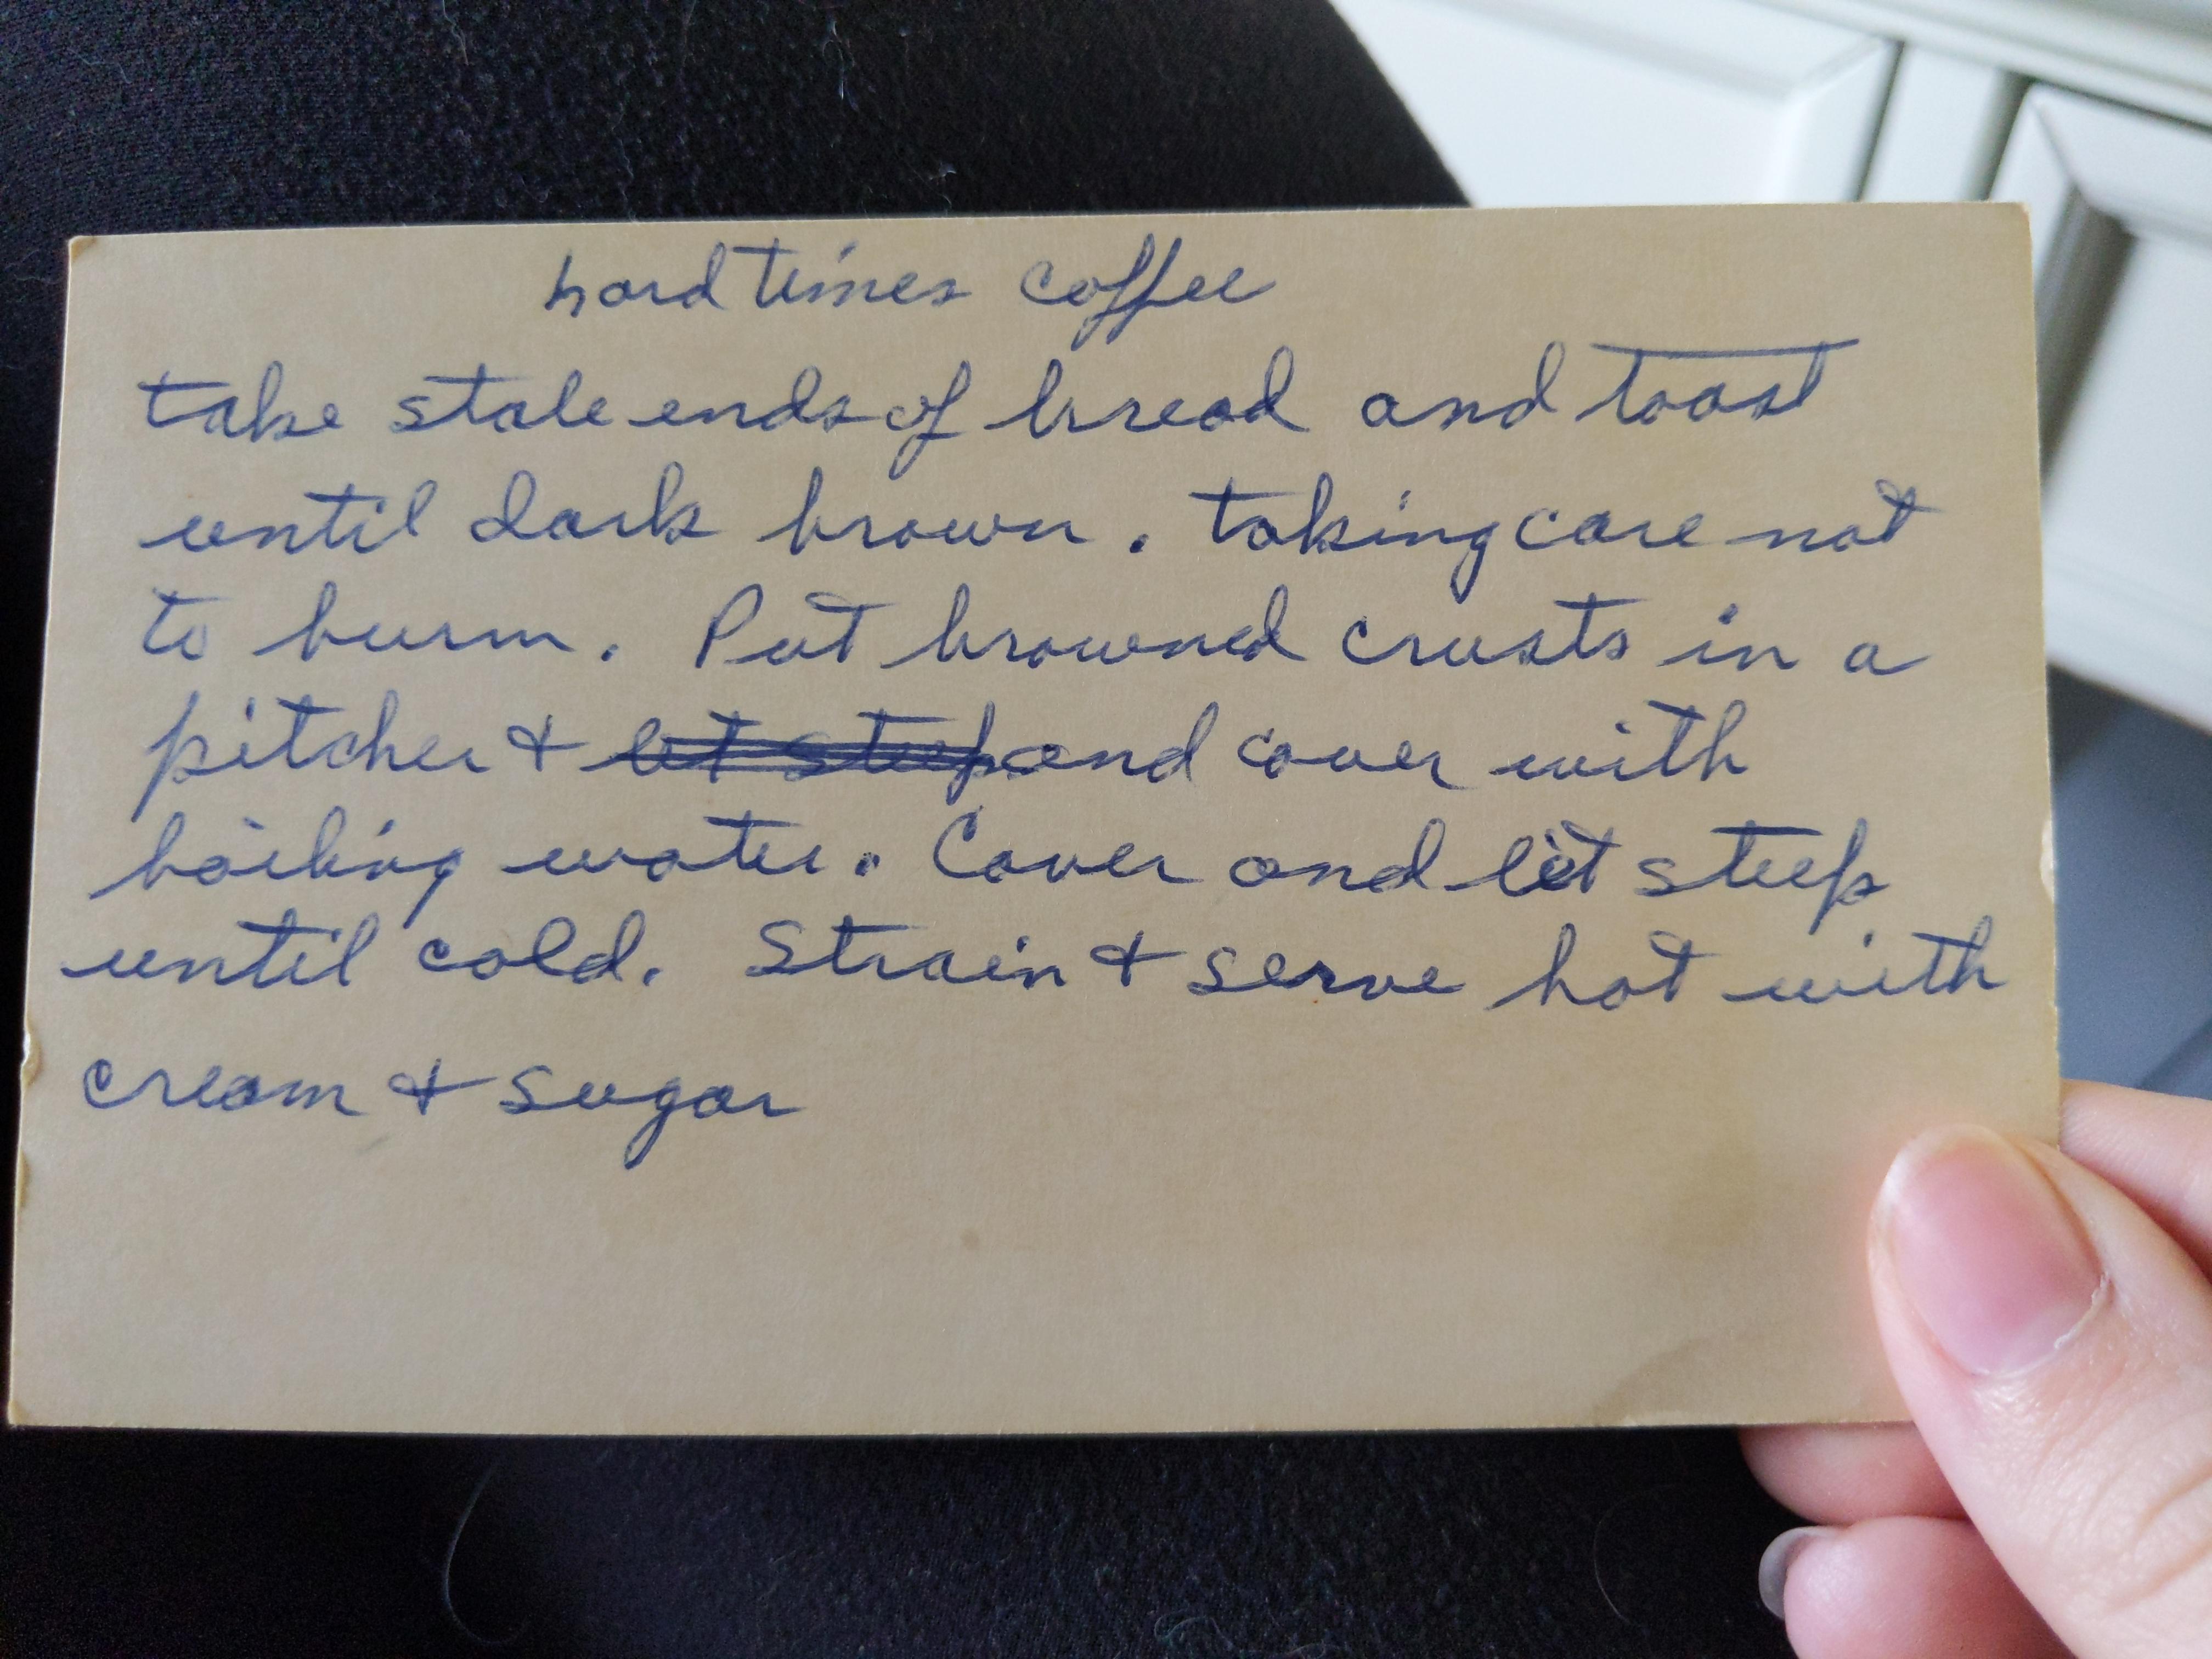 hard times coffee
take stale ends of bread and toast
until dark brown. taking care not
to burn. Put browned crusts in a
pitcher & let steep and cover with
boiling water. Cover and let steep
until cold. Strain & serve hot with
cream & sugar